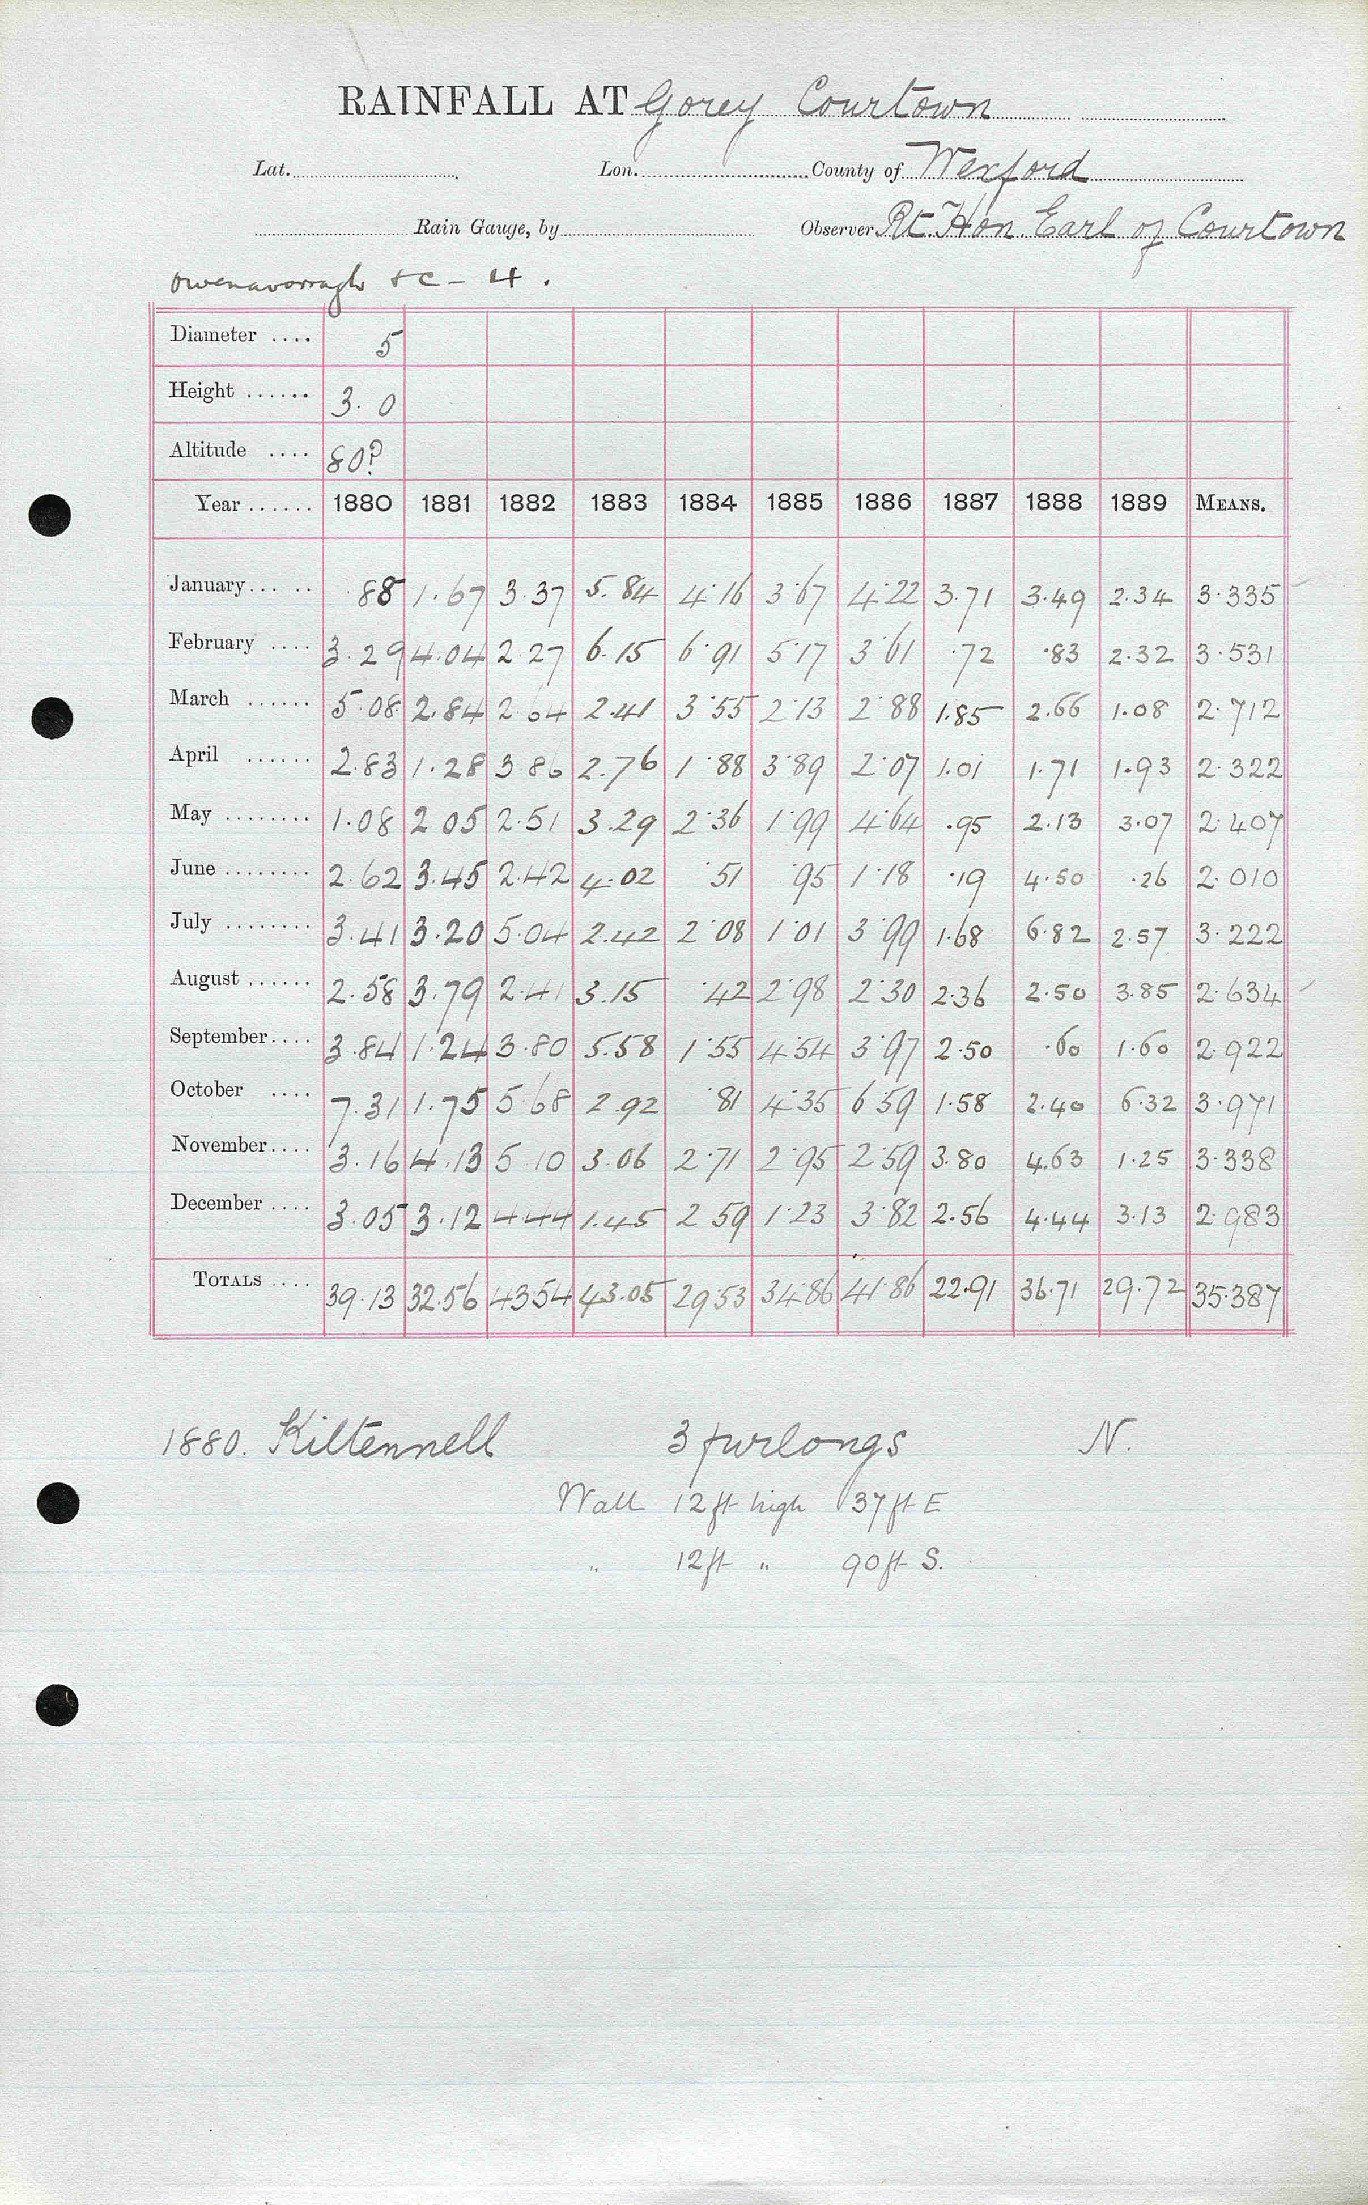 RAINFALL AT Gorey Courtown
Lat. Lon. County of Wexford
Rain Gauge, by Observer Rt. Hon Earl of Courtown
Owenavorragh &c - 4.
Diameter .... 5
Height ...... 3.0
Altitude .... 80?
Year ...... 1880 1881 1882 1883 1884 1885 1886 1887 1888 1889 MEANS.
January... .. .88 1.67 3.37 5.84 4.16 3.67 4.22 3.71 3.49 2.34 3.335
February .... 3.29 4.04 2.27 6.15 6.91 5.17 3.61 .72 .83 2.32 3.531
March ...... 5.08 2.84 2.64 2.41 3.55 2.13 2.88 1.85 2.66 1.08 2.712
April ...... 2.83 1.28 3.86 2.76 1.88 3.89 2.07 1.01 1.71 1.93 2.322
May ........ 1.08 2.05 2.51 3.29 2.36 1.99 4.64 .95 2.13 3.07 2.407
June ........ 2.62 3.45 2.42 4.02 .51 .95 1.18 .19 4.50 .26 2.010
July ........ 3.41 3.20 5.04 2.42 2.08 1.01 3.99 1.68 6.82 2.57 3.222
August ...... 2.58 3.79 2.41 3.15 .42 2.98 2.30 2.36 2.50 3.85 2.634
September.... 3.84 1.24 3.80 5.58 1.55 4.54 3.97 2.50 .60 1.60 2.922
October .... 7.31 1.75 5.68 2.92 .81 4.35 6.59 1.58 2.40 6.32 3.971
November.... 3.16 4.13 5.10 3.06 2.71 2.95 2.59 3.80 4.63 1.25 3.338
December .... 3.05 3.12 4.44 1.45 2.59 1.23 3.82 2.56 4.44 3.13 2.983
TOTALS .... 39.13 32.56 43.54 43.05 29.53 34.86 41.86 22.91 36.71 29.72 35.387
1880. Kiltennell 3 furlongs N.
Wall 12 ft high 37 ft E
" 12 ft " 90 ft S.